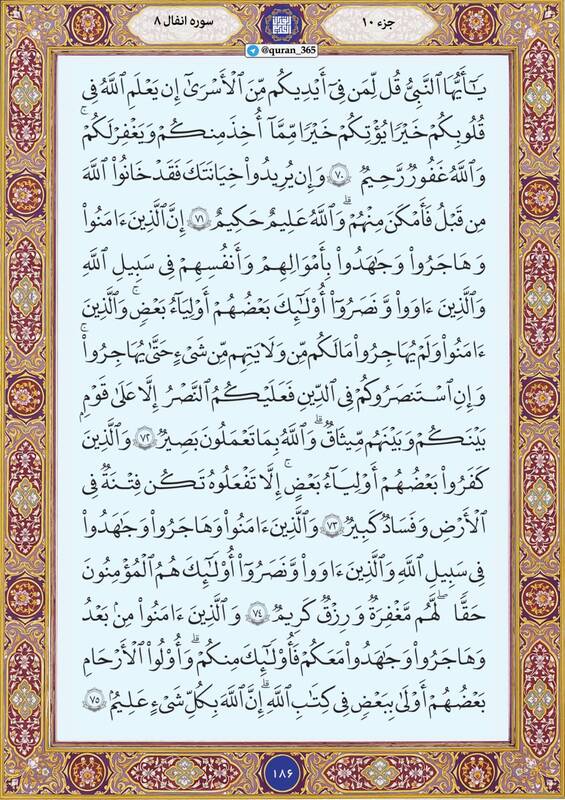 جزء ۱۰
سوره انفال ۸
@quran_365
يَـٰٓأَيُّهَا ٱلنَّبِيُّ قُل لِّمَن فِيٓ أَيْدِيكُم مِّنَ ٱلْأَسْرَىٰٓ إِن يَعْلَمِ ٱللَّهُ فِي
قُلُوبِكُمْ خَيْرًا يُؤْتِكُمْ خَيْرًا مِّمَّآ أُخِذَ مِنكُمْ وَيَغْفِرْ لَكُمْۗ
وَٱللَّهُ غَفُورٌ رَّحِيمٌ ۷۰ وَإِن يُرِيدُوا۟ خِيَانَتَكَ فَقَدْ خَانُوا۟ ٱللَّهَ
مِن قَبْلُ فَأَمْكَنَ مِنْهُمْۗ وَٱللَّهُ عَلِيمٌ حَكِيمٌ ۷۱ إِنَّ ٱلَّذِينَ ءَامَنُوا۟
وَهَاجَرُوا۟ وَجَـٰهَدُوا۟ بِأَمْوَٰلِهِمْ وَأَنفُسِهِمْ فِي سَبِيلِ ٱللَّهِ
وَٱلَّذِينَ ءَاوَوا۟ وَّنَصَرُوٓا۟ أُو۟لَـٰٓئِكَ بَعْضُهُمْ أَوْلِيَآءُ بَعْضٍۚ وَٱلَّذِينَ
ءَامَنُوا۟ وَلَمْ يُهَاجِرُوا۟ مَا لَكُم مِّن وَلَـٰيَتِهِم مِّن شَيْءٍ حَتَّىٰ يُهَاجِرُوا۟ۚ
وَإِنِ ٱسْتَنصَرُوكُمْ فِي ٱلدِّينِ فَعَلَيْكُمُ ٱلنَّصْرُ إِلَّا عَلَىٰ قَوْمٍۭ
بَيْنَكُمْ وَبَيْنَهُم مِّيثَـٰقٌۗ وَٱللَّهُ بِمَا تَعْمَلُونَ بَصِيرٌ ۷۲ وَٱلَّذِينَ
كَفَرُوا۟ بَعْضُهُمْ أَوْلِيَآءُ بَعْضٍۚ إِلَّا تَفْعَلُوهُ تَكُن فِتْنَةٌ فِي
ٱلْأَرْضِ وَفَسَادٌ كَبِيرٌ ۷۳ وَٱلَّذِينَ ءَامَنُوا۟ وَهَاجَرُوا۟ وَجَـٰهَدُوا۟
فِي سَبِيلِ ٱللَّهِ وَٱلَّذِينَ ءَاوَوا۟ وَّنَصَرُوٓا۟ أُو۟لَـٰٓئِكَ هُمُ ٱلْمُؤْمِنُونَ
حَقًّاۚ لَّهُم مَّغْفِرَةٌ وَرِزْقٌ كَرِيمٌ ۷۴ وَٱلَّذِينَ ءَامَنُوا۟ مِنۢ بَعْدُ
وَهَاجَرُوا۟ وَجَـٰهَدُوا۟ مَعَكُمْ فَأُو۟لَـٰٓئِكَ مِنكُمْۚ وَأُو۟لُوا۟ ٱلْأَرْحَامِ
بَعْضُهُمْ أَوْلَىٰ بِبَعْضٍ فِي كِتَـٰبِ ٱللَّهِۗ إِنَّ ٱللَّهَ بِكُلِّ شَيْءٍ عَلِيمٌۢ ۷۵
۱۸۶